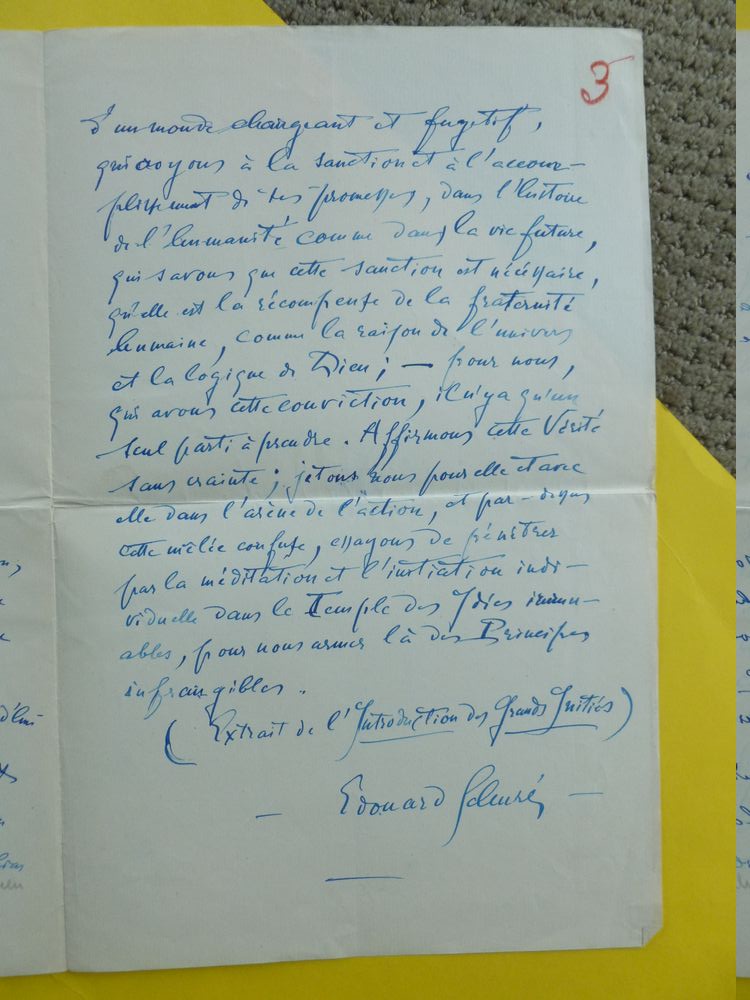 3
d'un monde changeant et fugitif,
qui croyons à la sanction et à l'accom-
plissement de ses promesses, dans l'histoire
de l'humanité comme dans la vie future,
qui savons que cette sanction est nécessaire,
qu'elle est la récompense de la fraternité
humaine, comme la raison de l'univers
et la logique de Dieu; — pour nous,
qui avons cette conviction, il n'y a qu'un
seul parti à prendre. Affirmons cette Vérité
sans crainte; jetons nous pour elle et avec
elle dans l'arène de l'action, et par-dessus
cette mêlée confuse, essayons de pénétrer
par la méditation et l'initiation indi-
viduelle dans le Temple des Idées immu-
ables, pour nous armer là des Principes
infrangibles.
(Extrait de l'Introduction des Grands Initiés)
— Edouard Schuré —